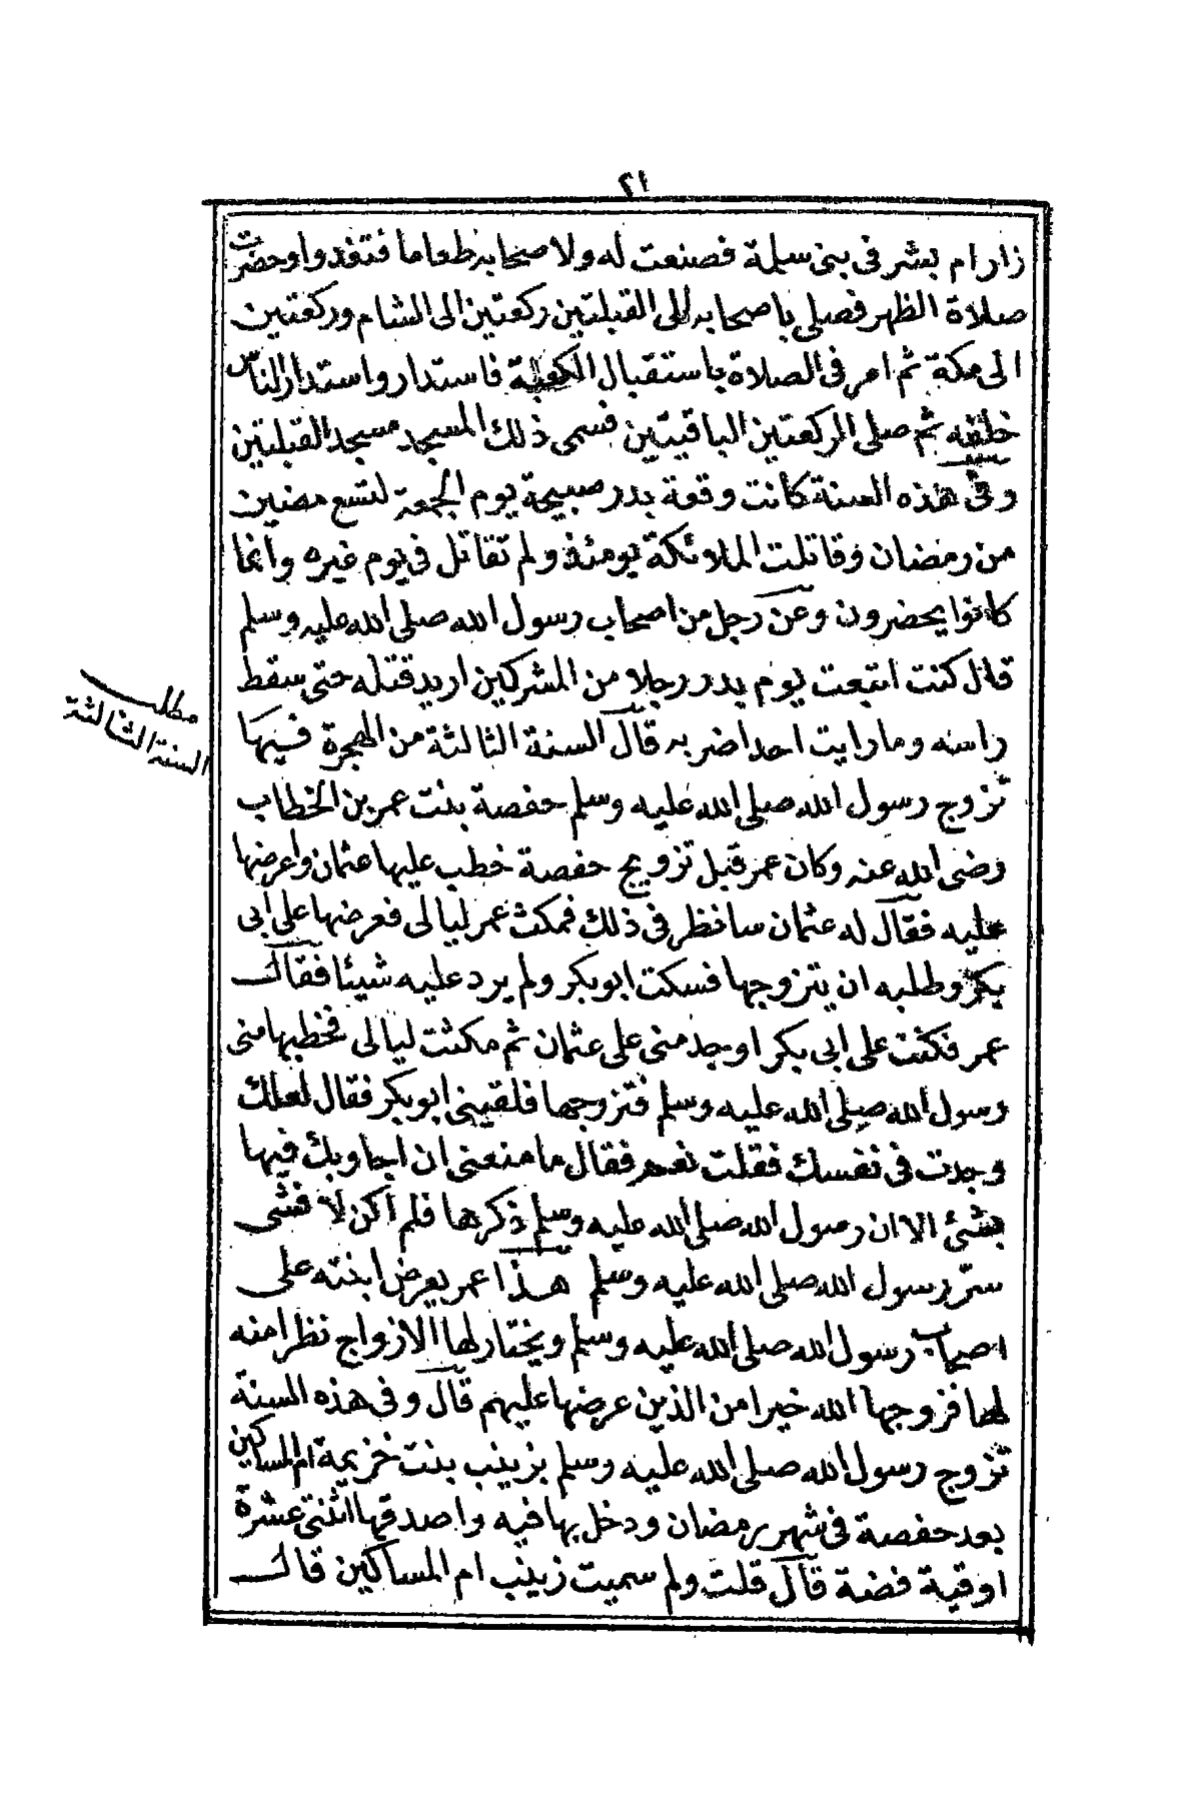 ٢١
زار ام بشر فى بنى سلمة فصنعت له ولاصحابه طعاما فتغدوا وحضرت
صلاة الظهر فصلى باصحابه الى القبلتين ركعتين الى الشام وركعتين
الى مكة ثم امر فى الصلاة باستقبال الكعبة فاستدار واستدار الناس
خلفه ثم صلى الركعتين الباقيتين فسمى ذلك المسجد مسجد القبلتين
وفى هذه السنة كانت وقوة بدر صبيحة يوم الجمعة لتسع مضين
من رمضان وقاتلت الملائكة يومئذ ولم تقاتل فى يوم غيره وانما
كانوا يحضرون وعن رجل من اصحاب رسول الله صلى الله عليه وسلم
قال كنت اتبعت يوم بدر رجلا من المشركين اريد قتله حتى سقط
راسه وما رايت احدا ضربه قال السنة الثالثة من الهجرة فيها
مطلب
السنة الثالثة
تزوج رسول الله صلى الله عليه وسلم حفصة بنت عمر بن الخطاب
رضى الله عنه وكان عمر قبل تزويج حفصة خطب عليها عثمان واعرضها
عليه فقال له عثمان سانظر فى ذلك فمكث عمر ليالى فعرضها على ابى
بكر وطلبه ان يتزوجها فسكت ابوبكر ولم يرد عليه شيئا فقال
عمر فكنت على ابى بكر اوجد منى على عثمان ثم مكثت ليالى فخطبها منى
رسول الله صلى الله عليه وسلم فتزوجها فلقينى ابوبكر فقال لعلك
وجدت فى نفسك فقلت نعم فقال ما منعنى ان اجاوبك فيها
بشئ الا ان رسول الله صلى الله عليه وسلم ذكرها فلم اكن لافشى
سر رسول الله صلى الله عليه وسلم هذا عمر يعرض ابنته على
اصحاب رسول الله صلى الله عليه وسلم ويختار لها الازواج نظرا منه
لها فزوجها الله خيرا من الذين عرضها عليهم قال وفى هذه السنة
تزوج رسول الله صلى الله عليه وسلم بزينب بنت خزيمة ام المساكين
بعد حفصة فى شهر رمضان ودخل بها فيه واصدقها اثنتى عشرة
اوقية فضة قال قلت ولم سميت زينب ام المساكين قال